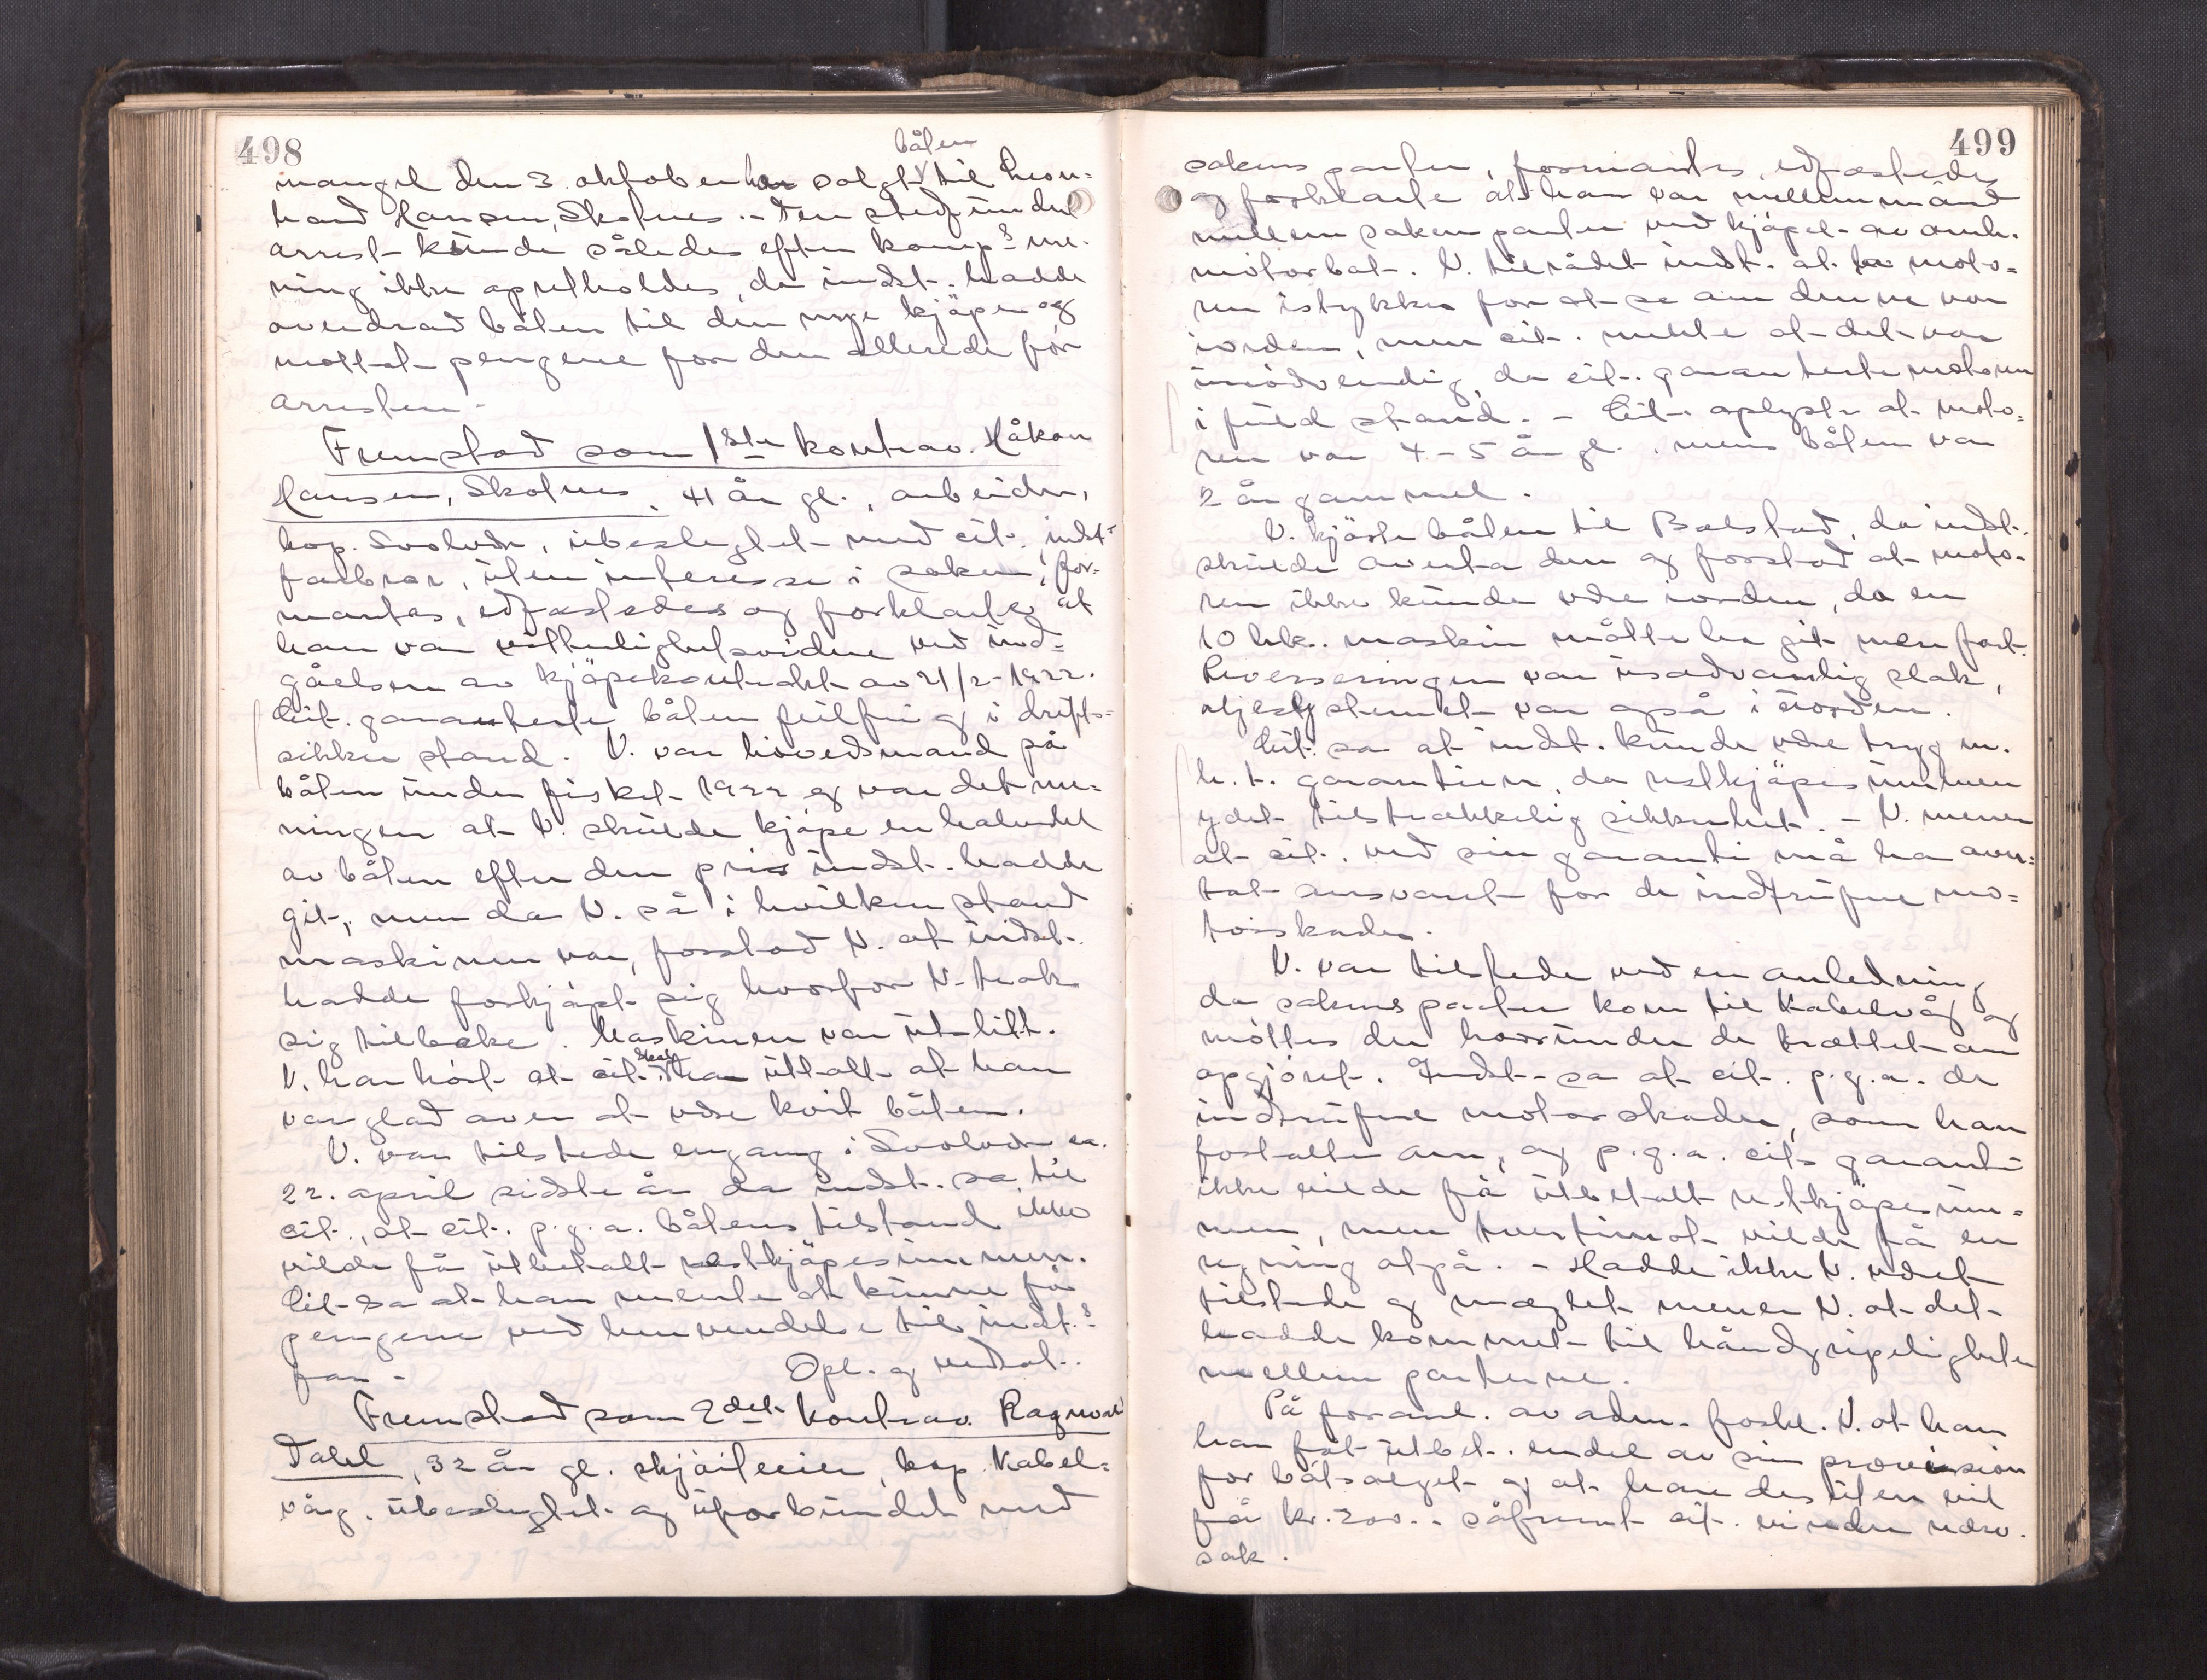 498
båten
mangel den 3. oktober har solgt til Leon-
hard Hansen, Skotnes. - Den stedfundne
arrest kunde således efter komp.s me-
ning ikke opretholdes, da indst. hadde
overdrad båten til den nye kjøper og
mottat pengene for den allerede før
arresten.
Fremstod som 1ste kontrav. Håkon
Hansen, Skotnes, 41 år gl., arbeider,
bop. Svolvær, ubeslegtet med cit., indst.s
farbror, uten interesse i saken, for-
mantes, edfæstedes og forklarte at
han var vitterlighetsvidne ved ind-
gåelsen av kjøpekontrakt av 21/2-1922.
Cit. garanterte båten feilfri og i drifts-
sikker stand. V. var høvedsmand på
båten under fisket 1922 og var det me-
ningen at V. skulde kjøpe en halvdel
av båten efter den pris indst. hadde
git, men da V. så i hvilken stand
maskinen var, forstod V. at indst.
hadde forkjøpt sig hvorfor V. trak
sig tilbake. Maskinen var utslitt.
V. har hørt at cit. skal ha uttalt at han
var glad over at være kvit båten.
V. var tilstede engang i Svolvær ca.
22. april sidste år da indst. sa til
cit., at cit. p.g.a. båtens tilstand ikke
vilde få utbetalt restkjøpesummen.
Cit. sa at han mente at kunne få
pengene ved henvendelse til indst.s
far. - Opl. og vedtat.
Fremstod som 2det kontrav. Ragnvald
Dahl, 32 år gl. skjøiteeier, bop. Kabel-
våg, ubeslegtet og uforbundet med
499
sakens parter, formantes, edfæstedes
og forklarte at han var mellemmand
mellem sakens parter ved kjøpet av omh.
motorbåt. V. tilrådet indst. at ta moto-
ren istykker for at se om denne var
iorden, men cit. mente at det var
unødvendig, da cit. garanterte motoren
i fuld stand. - Cit. oplyste at moto-
ren var 4-5 år gl., mens båten var
2 år gammel.
V. kjørte båten til Balstad, da indst.
skulde overta den og forstod at moto-
ren ikke kunde være iorden, da en
10 hk. maskin måtte ha git mere fart.
Reverseringen var usedvanlig slak,
oljesystemet var også i uorden.
Cit. sa at indst. kunde være tryg m.
h. t. garantien, da restkjøpesummen
ydet tilstrækkelig sikkerhet. - V. mener
at cit. ved sin garanti må ha over-
tat ansvaret for de indtrufne mo-
torskader.
V. var tilstede ved en anledning
da sakens parter kom til Kabelvåg og
møttes der hvorunder de trættet om
opgjøret. Indst. sa at cit. p.g.a. de
indtrufne motorskader, som han
fortalte om, og p.g.a. cits garanti
ikke vilde få utbetalt restkjøpesum-
men, men tvertimot vilde få en
regning atpå. - Hadde ikke V. været
tilstede og mæglet mener V. at det
hadde kommet til håndgripeligheter
mellem parterne.
På foranl. av adm. forkl. V. at han
har fåt utbet. endel av sin provision
for båtsalget og at han desuten vil
få kr. 200.- såfremt cit. vinder nærv.
sak.